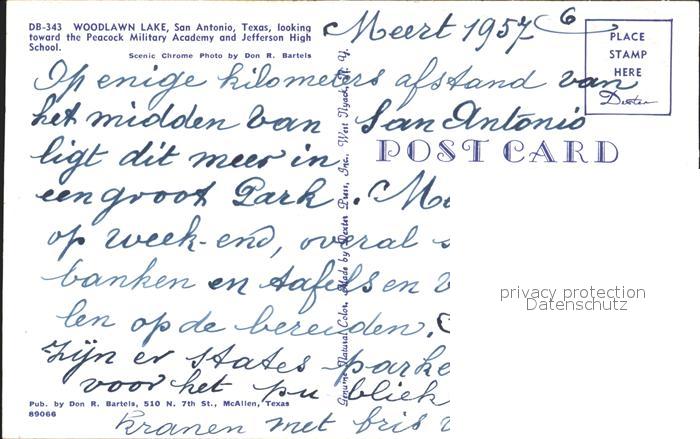 DB-343 WOODLAWN LAKE, San Antonio, Texas, looking
toward the Peacock Military Academy and Jefferson High
School.
Scenic Chrome Photo by Don R. Bartels
Meert 1957 6
PLACE
STAMP
HERE
Dexter
Op enige kilometers afstand van
het midden van San Antonio
ligt dit meer in
POST CARD
een groot Park. M
op week-end, overal
banken en tafels en
len op de bereiden.
Zijn er states parke
voor het pu bliek
kranen met fris
Pub. by Don R. Bartels, 510 N. 7th St., McAllen, Texas
89066
Genuine Natural Color. Made by Dexter Press, Inc., West Nyack, N. Y.
privacy protection
Datenschutz